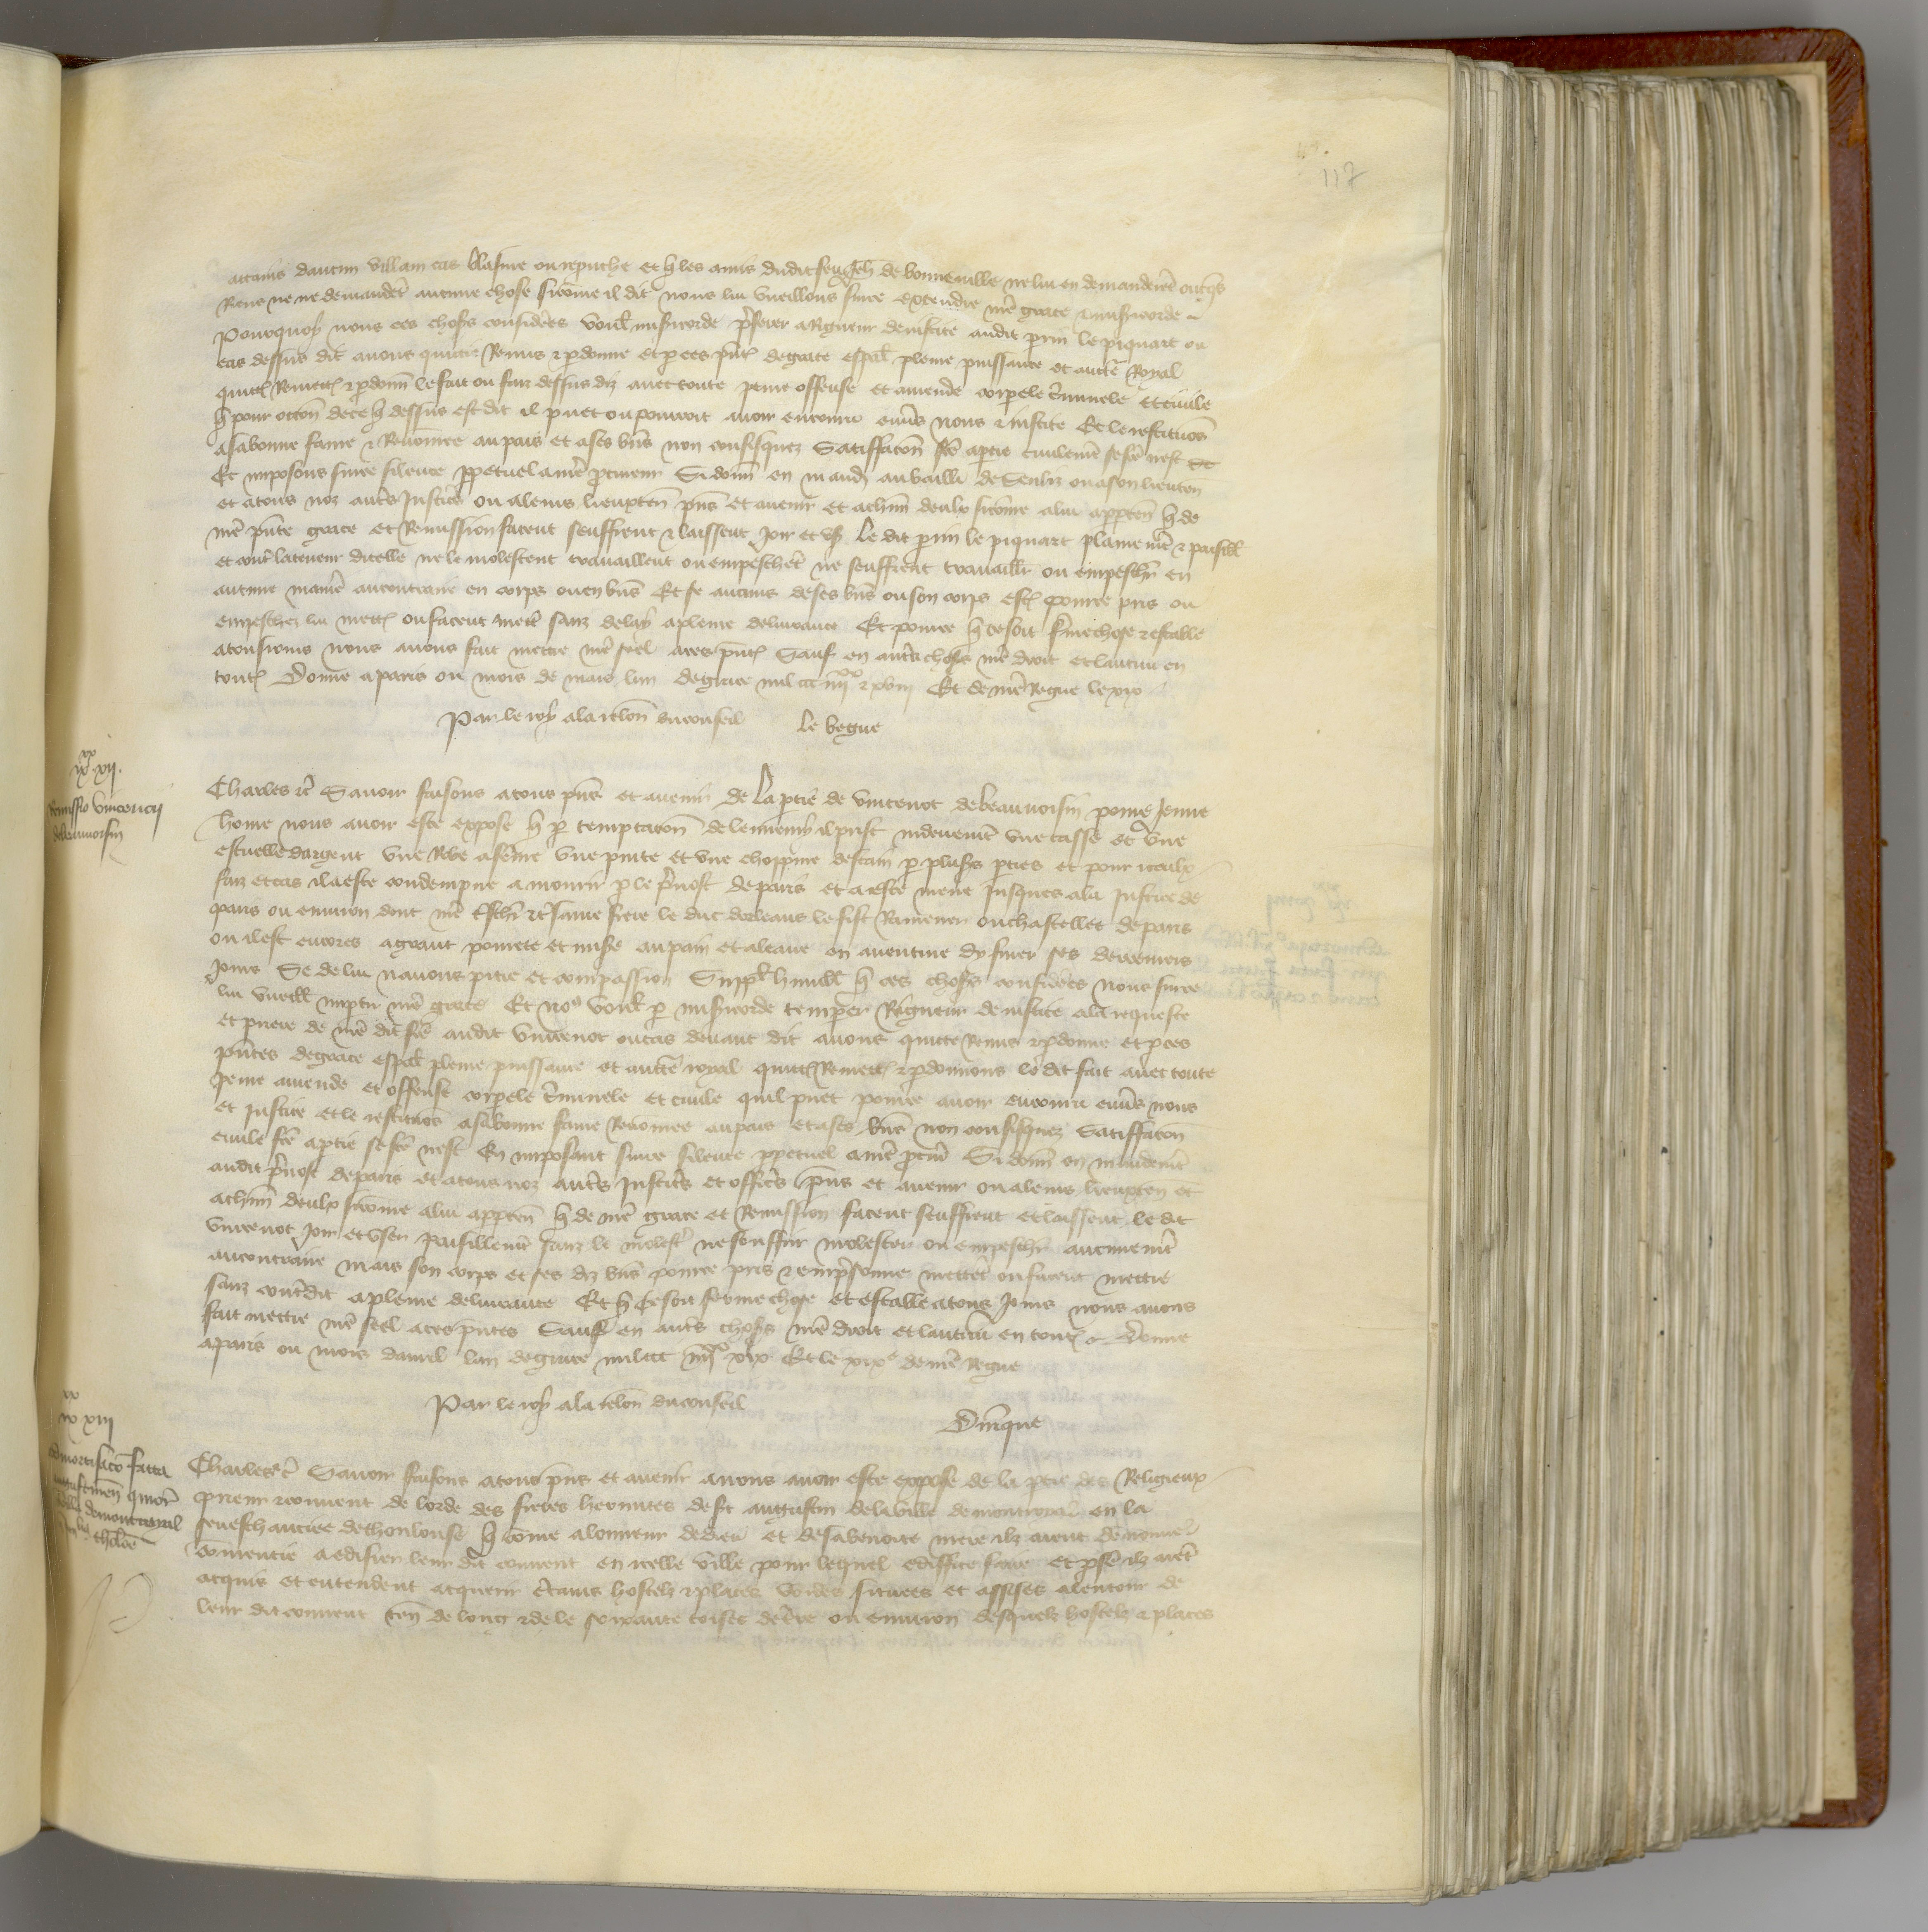 117
attains daucun villain cas blasme ou repruche et q̃ les amis dudit feu Jeh̃ de bonneuille ne lui en demanderẽt onq̃s
Riens ne ne demandẽt aucune chose sicõme il dit nous lui vueillons sur ce extendre nr̃e grace & misẽicorde
Pourquoy nous ces choses considerees voul̃ misẽicorde p̃ferer a Rigueur de iustice audit perrin le piquart ou
cas dessus dit auons quictie Remis & pardonne et p ces pñt̃ de grace esp̃al pleine puissance et auct̃e Royal
quict̃ Remett̃ & pardonñ le fait ou faiz dessus diz auec toute peine offense et amende corpele c̃minele et ciuile
q̃ pour occõn de ce q̃ dessus est dit il puet ou pourroit auoir encouru enuers nous & iustice Et le restituõs
a sa bonne fame & Renõmee au pais et a ses biẽs non confisquez Satiffacõn fc̃e a ptie ciuilemẽt se fc̃e nest
Et imposons sur ce silence ppetuel a nr̃e pcureur Si donñ en mand̃ au bailli de Senliz ou a son lieuteñ
et a tous noz aut̃s Justic̃ ou a leurs lieuxteñ pñs et auenir et a chũn deulx sicõme a lui apparteñ q̃ de
nr̃e pñte grace et Remission facent seuffrent & laissent Joir et vs̃ le dit perrin le piquart plainemẽt & paisibl̃
et cont̃ la teneur dicelle ne le molestent trauaillent ou empeschẽt ne seuffrent trauaillier ou empeschr̃ en
aucune manie᷑ au contraire en corps ou en biẽs Et se aucuns de ses biẽs ou son corps est̃ pour ce pris ou
empeschez lui mett̃ ou facent mett̃ sanz delay a pleine deliurance Et pour ce q̃ ce soit ferme chose & estable
a tousiours nous auons fait mettre nr̃e seel a ces pñt̃ Sauf en aut̃s choses nr̃e droit et lautrui en
tout̃ Donne a paris ou mois de mars lan de grace mil ccc iiiixx & xviii Et de nr̃e Regne le xix
Par le roy a la relõn du conseil le begue
ixxx xii.
Remissio vincencii
de beauuoisin
Charles &c̃ Sauoir faisons a tous pñs et auenir De la ptie de vincenot de beauuoisin poure Jeune
home nous auoir este expose q̃ p temptacõn de lennemy il prist induement vne tasse et vne
escuelle dargent vne Robe a fẽme vne pinte et vne choppine destain p plus̃s pties et pour iceulx
faiz et cas il a este condempne a mourir p le p̃uost de paris et a este mene Jusques a la Justice de
paris ou enuiron dont nr̃e t̃schier & t̃same frere le duc dorleans le fist Ramener ou chastellet de paris
ou il est encores a grant pourete et misere au pain et a leaue en auenture dy finer ses derreniers
Jours Se de lui nauons pitie et compassion Supp̃l humbl̃ q̃ ces choses considerees nous sur ce
lui vueill̃ imptir nr̃e grace Et nous voul̃ p misẽicorde temperer Rigueur de iustice a la requeste
et priere de nr̃e dit fre᷑ audit vincenot ou cas deuant dit auons quicte Remis & pdonne et p ces
pñtes de grace esp̃al pleine puissance et auct̃e royal quict̃ Remett̃ & pdonnons le dit fait auec toute
peine amende et offense corpele c̃minele et ciuile quil puet pour ce auoir encouru enũs nous
et Justice et le restituõs a sa bonne fame Renõmee au pais et a ses biẽs non confisquez Satiffacõn
ciuile fc̃e a ptie se fc̃e nest En imposant sur ce silence ppetuel a nr̃e pcur̃ Si donñ en mandemẽt
audit p̃uost de paris et a tous noz aut̃s Justic̃s et offic̃s pñs et auenir ou a leurs lieuxteñ et
a chũn deulx sicõme a lui apparteñ q̃ de nr̃e grace et Remission facent seuffrent et laissent le dit
vincenot Joir et vser paisiblemẽt sanz le molest̃ ne souffrir molester ou empeschr̃ aucunemẽt
au contraire mais son corps et ses diz biẽs pour ce pris & emp̃sonne mettẽt ou facent mettre
sanz contredit a pleine deliurance Et q̃ ce soit ferme chose et estable a tous Jours nous auons
fait mettre nr̃e seel a ces pñtes Sauf en aut̃s choses nr̃e droit et lautrui en tout̃ Donne
a paris ou mois dauril lan de grace mil ccc iiiixx xix Et le xixe de nr̃e Regne
Par le roy a la relõn du conseil
Dm̃que
ixxx xiii
Admortisacõ facta
augustineñ
ville de montroyal
Charles &c̃ Sauoir faisons a tous pñs et auenir a nous auoir este expose de la ptie des Religieux
prieur & couuent de lordre des freres hermites de st̃ augustin de la ville de montroyal en la
seneschaucee de thoulouse q̃ cõme a lonneur de dieu et de sa benoite mere ilz aient de nouuel
cõmencie a edifier leur dit couuent en icelle ville pour lequel ediffice faire et pfr̃e ilz aiẽt
acquis et entendent acquerir c̃tains hostelz & places voides situees et assises a lentour de
leur dit couuent teñ de long & de le soixante toises de t̃re ou enuiron desquelz hostelz & places